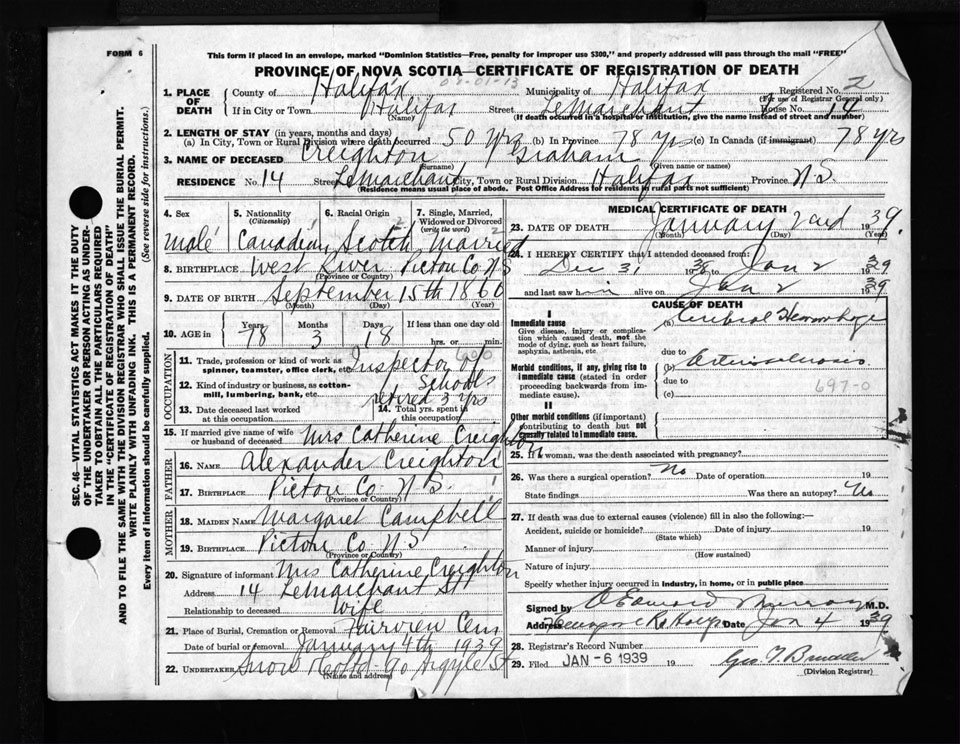 FORM 6
This form if placed in an envelope, marked "Dominion Statistics—Free, penalty for improper use $300," and properly addressed will pass through the mail "FREE"
PROVINCE OF NOVA SCOTIA—CERTIFICATE OF REGISTRATION OF DEATH
1. PLACE OF DEATH
County of Halifax Municipality of Halifax Registered No. 2
(For use of Registrar General only)
If in City or Town Halifax Street LeMarchant House No. 14
(Name) (If death occurred in a hospital or institution, give the name instead of street and number)
2. LENGTH OF STAY (in years, months and days)
(a) In City, Town or Rural Division where death occurred 50 yrs (b) In Province 78 yrs (c) In Canada (if immigrant) 78 yrs
3. NAME OF DECEASED Creighton Graham
(Surname) (Given name or names)
RESIDENCE No. 14 Street LeMarchant City, Town or Rural Division Halifax Province N.S.
(Residence means usual place of abode. Post Office Address for residents in rural parts not sufficient)
4. Sex
5. Nationality (Citizenship)
6. Racial Origin
7. Single, Married, Widowed or Divorced (write the word)
Male Canadian Scotch Married
8. BIRTHPLACE West River Pictou Co. N S
(Province or Country)
9. DATE OF BIRTH September 15th 1860
(Month) (Day) (Year)
10. AGE in Years Months Days If less than one day old
78 3 18 hrs. or min.
OCCUPATION
11. Trade, profession or kind of work as spinner, teamster, office clerk, etc. Inspector of
12. Kind of industry or business, as cotton-mill, lumbering, bank, etc. Schools
retired 3 yrs
13. Date deceased last worked at this occupation
14. Total yrs. spent in this occupation
15. If married give name of wife or husband of deceased Mrs Catherine Creighton
FATHER
16. NAME Alexander Creighton
17. BIRTHPLACE Pictou Co. N S.
MOTHER
18. MAIDEN NAME Margaret Campbell
19. BIRTHPLACE Pictou Co N S
(Province or Country)
20. Signature of informant Mrs Catherine Creighton
Address 14 LeMarchant St
Relationship to deceased Wife
21. Place of Burial, Cremation or Removal Fairview Cem
Date of burial or removal January 4th 1939
22. UNDERTAKER Snow & Co Ltd 90 Argyle St
(Name and address)
MEDICAL CERTIFICATE OF DEATH
23. DATE OF DEATH January 2nd 1939
(Month) (Day) (Year)
24. I HEREBY CERTIFY that I attended deceased from:
Dec 31 1938 to Jan 2 1939
and last saw him alive on Jan 2 1939
CAUSE OF DEATH
I
Immediate cause
Give disease, injury or complication which caused death, not the mode of dying, such as heart failure, asphyxia, asthenia, etc
(a) Cerebral Hemorrhage
due to
Morbid conditions, if any, giving rise to immediate cause (stated in order proceeding backwards from immediate cause).
(b) Arteriosclerosis
due to
697-0
(c)
II
Other morbid conditions (if important) contributing to death but not causally related to immediate cause.
25. If a woman, was the death associated with pregnancy?
26. Was there a surgical operation? No Date of operation 19
State findings Was there an autopsy? No
27. If death was due to external causes (violence) fill in also the following:—
Accident, suicide or homicide? Date of injury 19
(State which)
Manner of injury
(How sustained)
Nature of injury
Specify whether injury occurred in industry, in home, or in public place
Signed by Murray M.D.
Address Date Jan 4 1939
28. Registrar's Record Number
29. Filed JAN -6 1939 19
(Division Registrar)
SEC. 46—VITAL STATISTICS ACT MAKES IT THE DUTY OF THE UNDERTAKER OR PERSON ACTING AS UNDERTAKER TO OBTAIN ALL THE PARTICULARS REQUIRED IN THE "CERTIFICATE OF REGISTRATION OF DEATH" AND TO FILE THE SAME WITH THE DIVISION REGISTRAR WHO SHALL ISSUE THE BURIAL PERMIT.
WRITE PLAINLY WITH UNFADING INK. THIS IS A PERMANENT RECORD.
Every item of information should be carefully supplied. (See reverse side for instructions.)